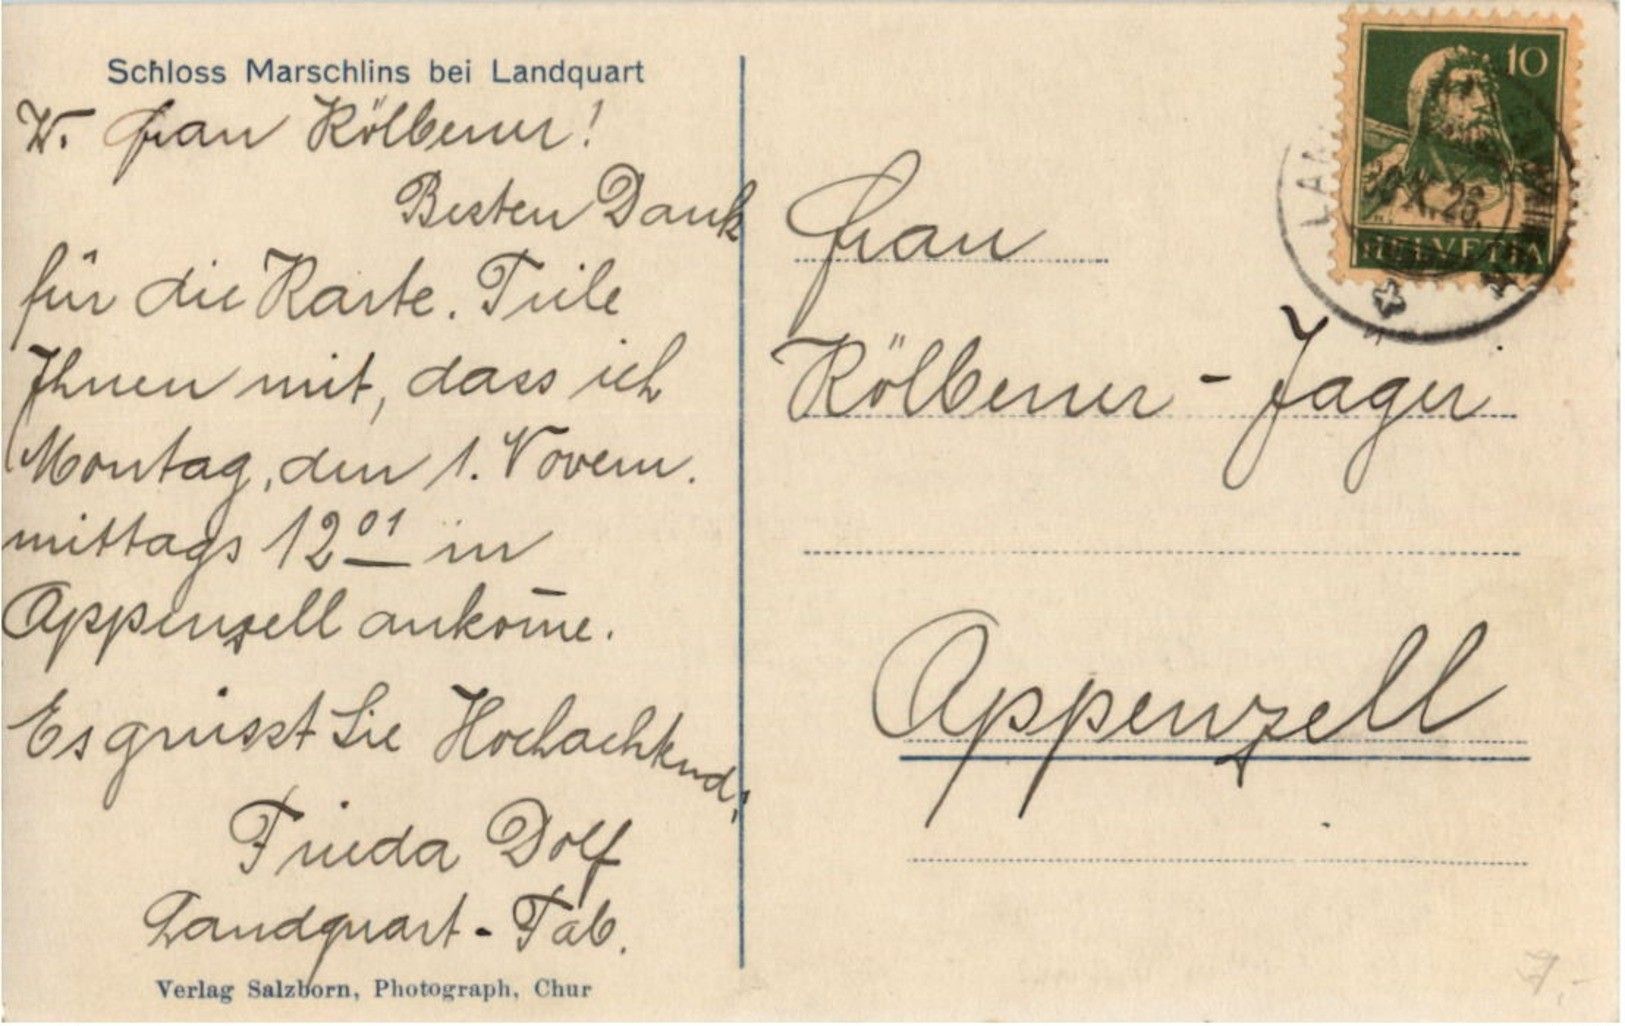 Schloss Marschlins bei Landquart
W. Frau Kölbener!
Besten Dank
für die Karte. Teile
Ihnen mit, dass ich
Montag, den 1. Novem.
mittags 12 01 in
Appenzell ankom̄e.
Es grüsst Sie Hochachtend,
Frieda Dolf
Landquart - Fab.
Verlag Salzborn, Photograph, Chur
10
X.26.
HELVETIA
Frau
Kölbener - Jager
Appenzell
7.-